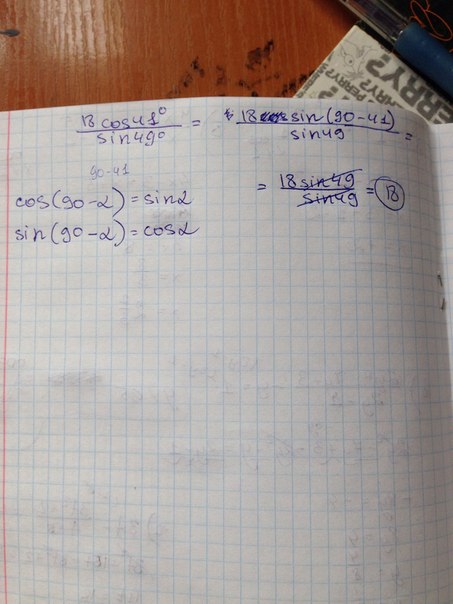 ERRY?
PERRY?
18 cos41° / sin49° = 18 sin(90-41) / sin49 =
90-41
= 18 sin49 / sin49 = 18
cos(90-α)=sinα
sin(90-α)=cosα